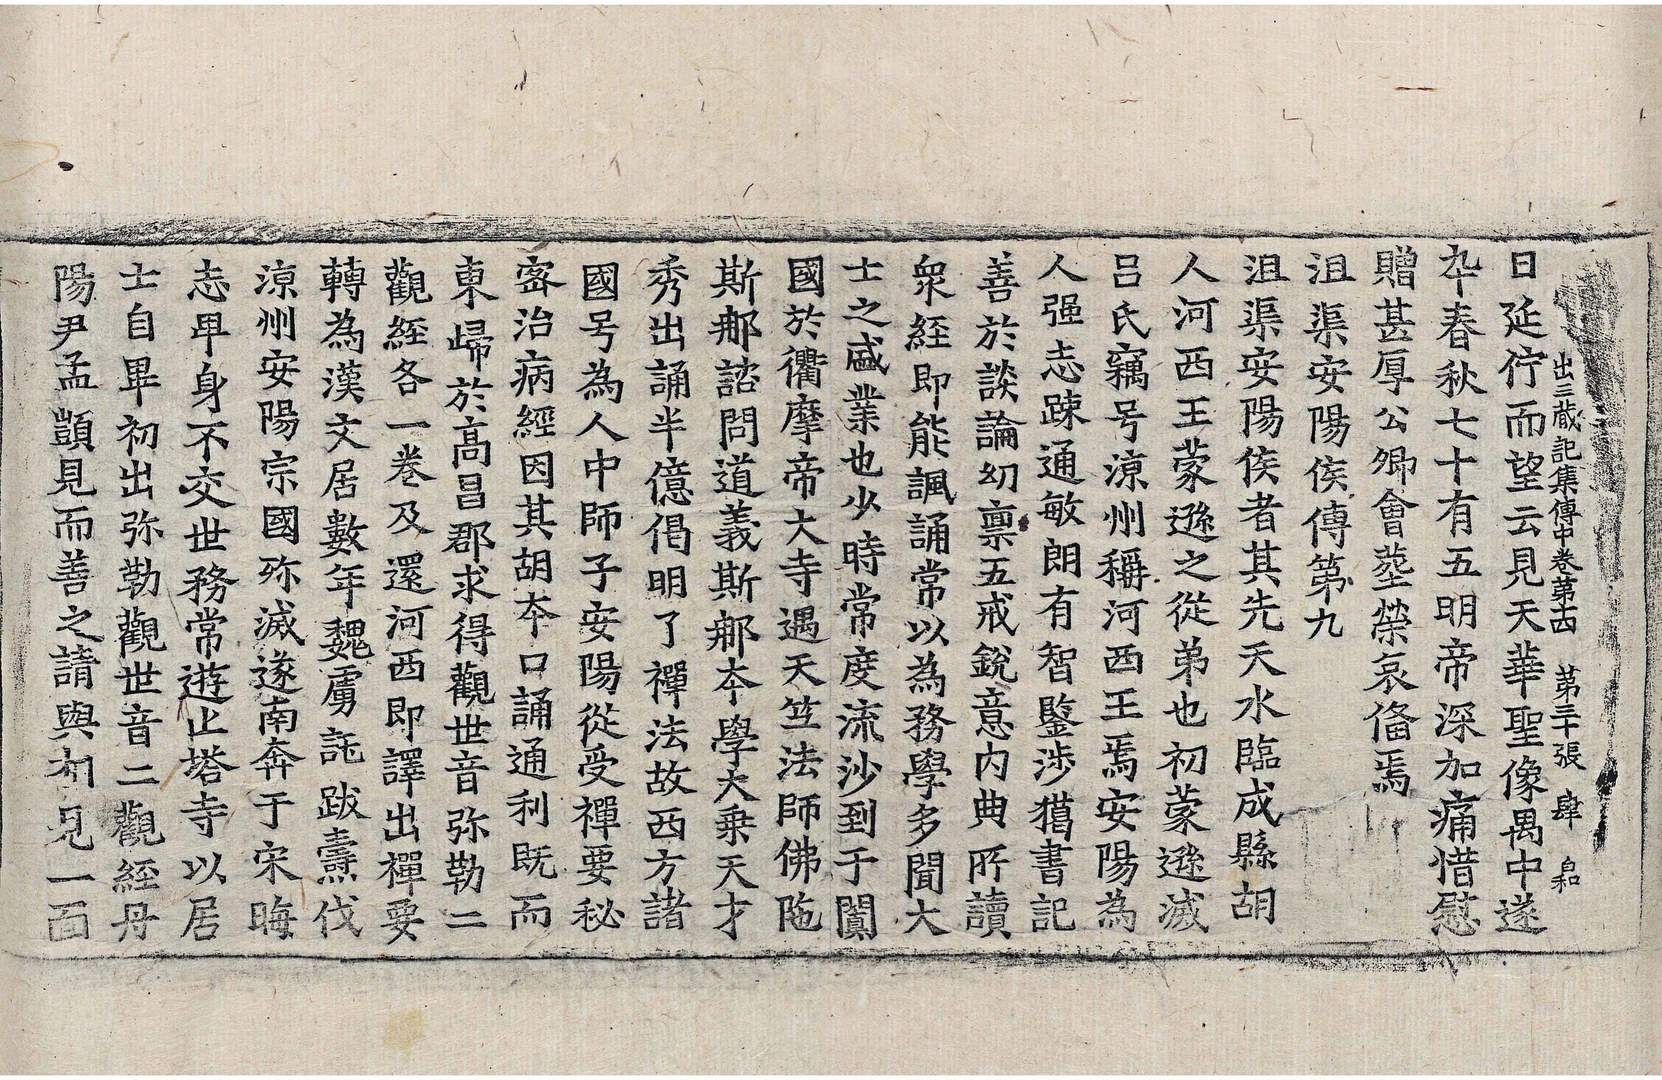 出三蔵記集傳中卷第十四 第三十張 肆 自和
日延佇而望云見天華聖像禺中遂
卒春秋七十有五明帝深加痛惜慰
贈甚厚公卿會塟榮哀俻焉
沮渠安陽侯傳第九
沮渠安陽侯者其先天水臨成縣胡
人河西王蒙遜之從弟也初蒙遜滅
呂氏竊号涼州稱河西王焉安陽為
人强志踈通敏朗有智鑒涉獦書記
善於談論幼禀五戒銳意内典所讀
衆經即能諷誦常以為務學多聞大
士之盛業也少時常度流沙到于闐
國於衢摩帝大寺遇天竺法師佛陁
斯郍諮問道義斯郍夲學大乗天才
秀出誦半億偈明了禪法故西方諸
國号為人中師子安陽從受禪要秘
密治病經因其胡夲口誦通利既而
東歸於高昌郡求得觀世音弥勒二
觀經各一卷及還河西即譯出禪要
轉為漢文居數年魏虜託跋燾伐
涼州安陽宗國殄滅遂南奔于宋晦
志卑身不交世務常遊止塔寺以居
士自畢初出弥勒觀世音二觀經丹
陽尹孟顗見而善之請與相見一面